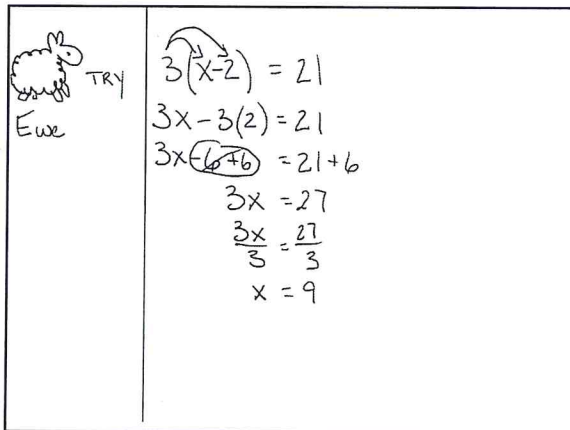 TRY
Ewe
3(x-2) = 21
3x - 3(2) = 21
3x -6 +6 = 21 + 6
3x = 27
3x/3 = 27/3
x = 9